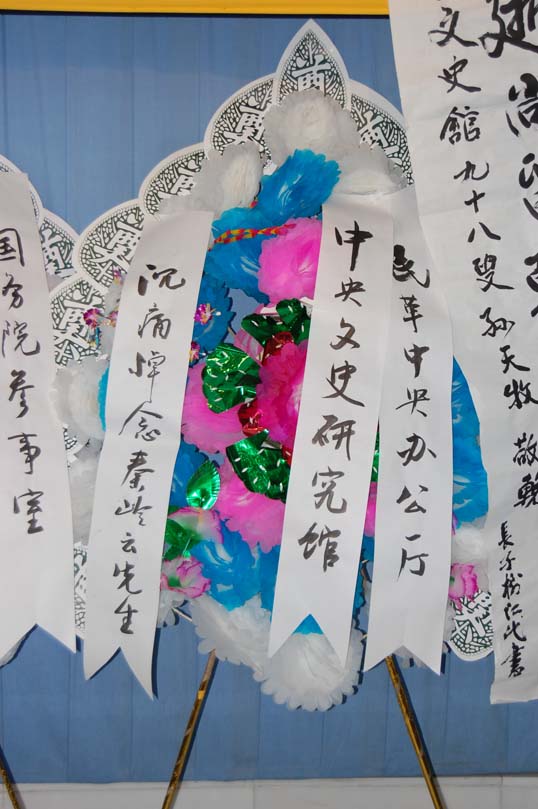 国务院参事室
沉痛悼念秦岭云先生
中央文史研究馆
民革中央办公厅
文史館九十八叟孙天牧敬輓
長子樹仁代書